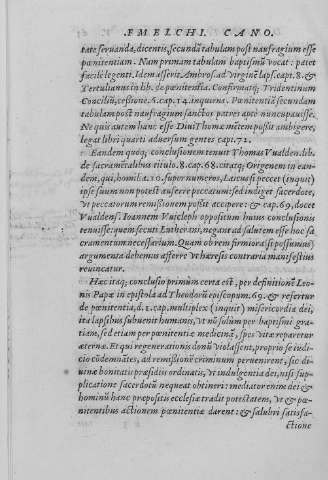 F. MELCHI. CANO.
tate seruanda, dicentis, secundũ tabulam post naufragium esse
pœnitentiam. Nam primam tabulam baptismũ vocat: patet
facile legenti. Idem asserit Ambros. ad virginẽ laps. capi. 8. &
Tertulianus in lib. de pœnitentia. Confirmatq; Tridentinum
Conciliũ, cessione. 6. cap. 14. inquiens. Pœnitentiã secundam
tabulam post naufragium sanctos patres aptè nuncupauisse.
Ne quis autem hanc esse Diui Thomæ mẽtem possit ambigere,
legat libri quarti aduersum gentes capi. 72.
Eandem quoq; conclusionem tenuit Thomas Vualden. lib.
de sacramẽtalibus titulo. 8. cap. 68. citatq; Origenem in ean-
dem, qui, homilia. 10. super numeros, Laicus si peccet (inquit)
ipse suum non potest auferre peccatum: sed indiget sacerdote,
vt peccatorum remissionem possit accipere: & cap. 69. docet
Vualdens. Ioannem Vuicleph oppositum huius conclusionis
tenuisse: quem secuti Lutherani, negant ad salutem esse hoc sa
cramentum necessarium. Quam ob rem firmiora (si possumus)
argumenta debemus afferre vt hæresis contraria manifestius
reuincatur.
Hæc itaq; conclusio primum certa est, per definitionẽ Leo-
nis Papæ in epistola ad Theodorũ episcopum. 69. & refertur
de pœnitentia, d. 1. cap. multiplex (inquit) misericordia dei,
ita lapsibus subuenit humanis, vt nõ solum per baptismi gra-
tiam, sed etiam per pœnitentiæ medicinã, spes vitæ reparetur
æternæ. Et qui regenerationis donũ violassent, proprio se iudi-
cio cõdemnãtes, ad remissionẽ criminum peruenirent, sic di-
uinæ bonitatis præsidiis ordinatis, vt indulgentia dei, nisi sup-
plicatione sacerdotũ nequeat obtineri: mediator enim dei &
hominũ hanc præpositis ecclesiæ tradit potestatem, vt & pœ-
nitentibus actionem pœnitentiæ darent: & salubri satisfa-
ctione